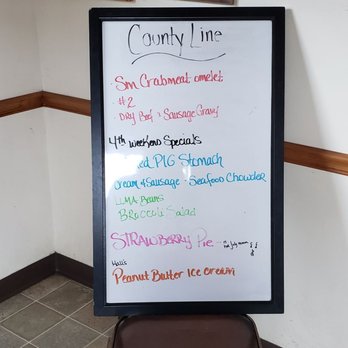 County Line
Sm Crabmeat omelet
#2
Dry Beef & Sausage Gravy
4th weekend Specials
PIG Stomach
Cream & Sausage Seafood Chowder
LIMA Beans
Broccoli Salad
STRAWBERRY Pie
Hall's
Peanut Butter Ice cream